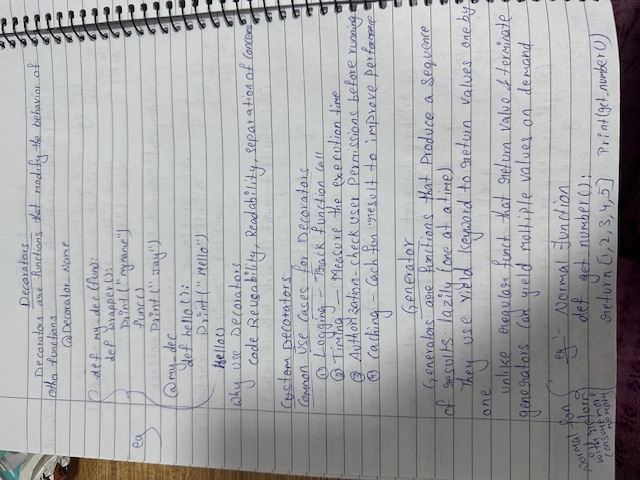 Decorators
Decorators are functions that modify the behavior of
other functions
@Decorator_Name
eg
def my_dec (fun):
def wrapper():
Print("myname")
func()
Print("Jay")
@my_dec
def hello():
Print("Hello")
hello()
Why use Decorators
Code Reusability, Readability, separation of concerns
Custom Decorators
Common Use Cases for Decorators
① Logging - Track function call
② Timing - Measure the execution time
③ Authorization - check user Permissions before running
④ Caching - Cach fun result to improve performance
Generator
Generators are functions that Produce a sequence
of results lazily (one at a time)
They use yield keyword to return values one by
one
unlike regular funct that return value & terminate
generators can yield multiple values on demand
eg :- Normal Function
def get number():
return [1,2,3,4,5] Print(get_number())
Normal fun
with return
consume more
memory